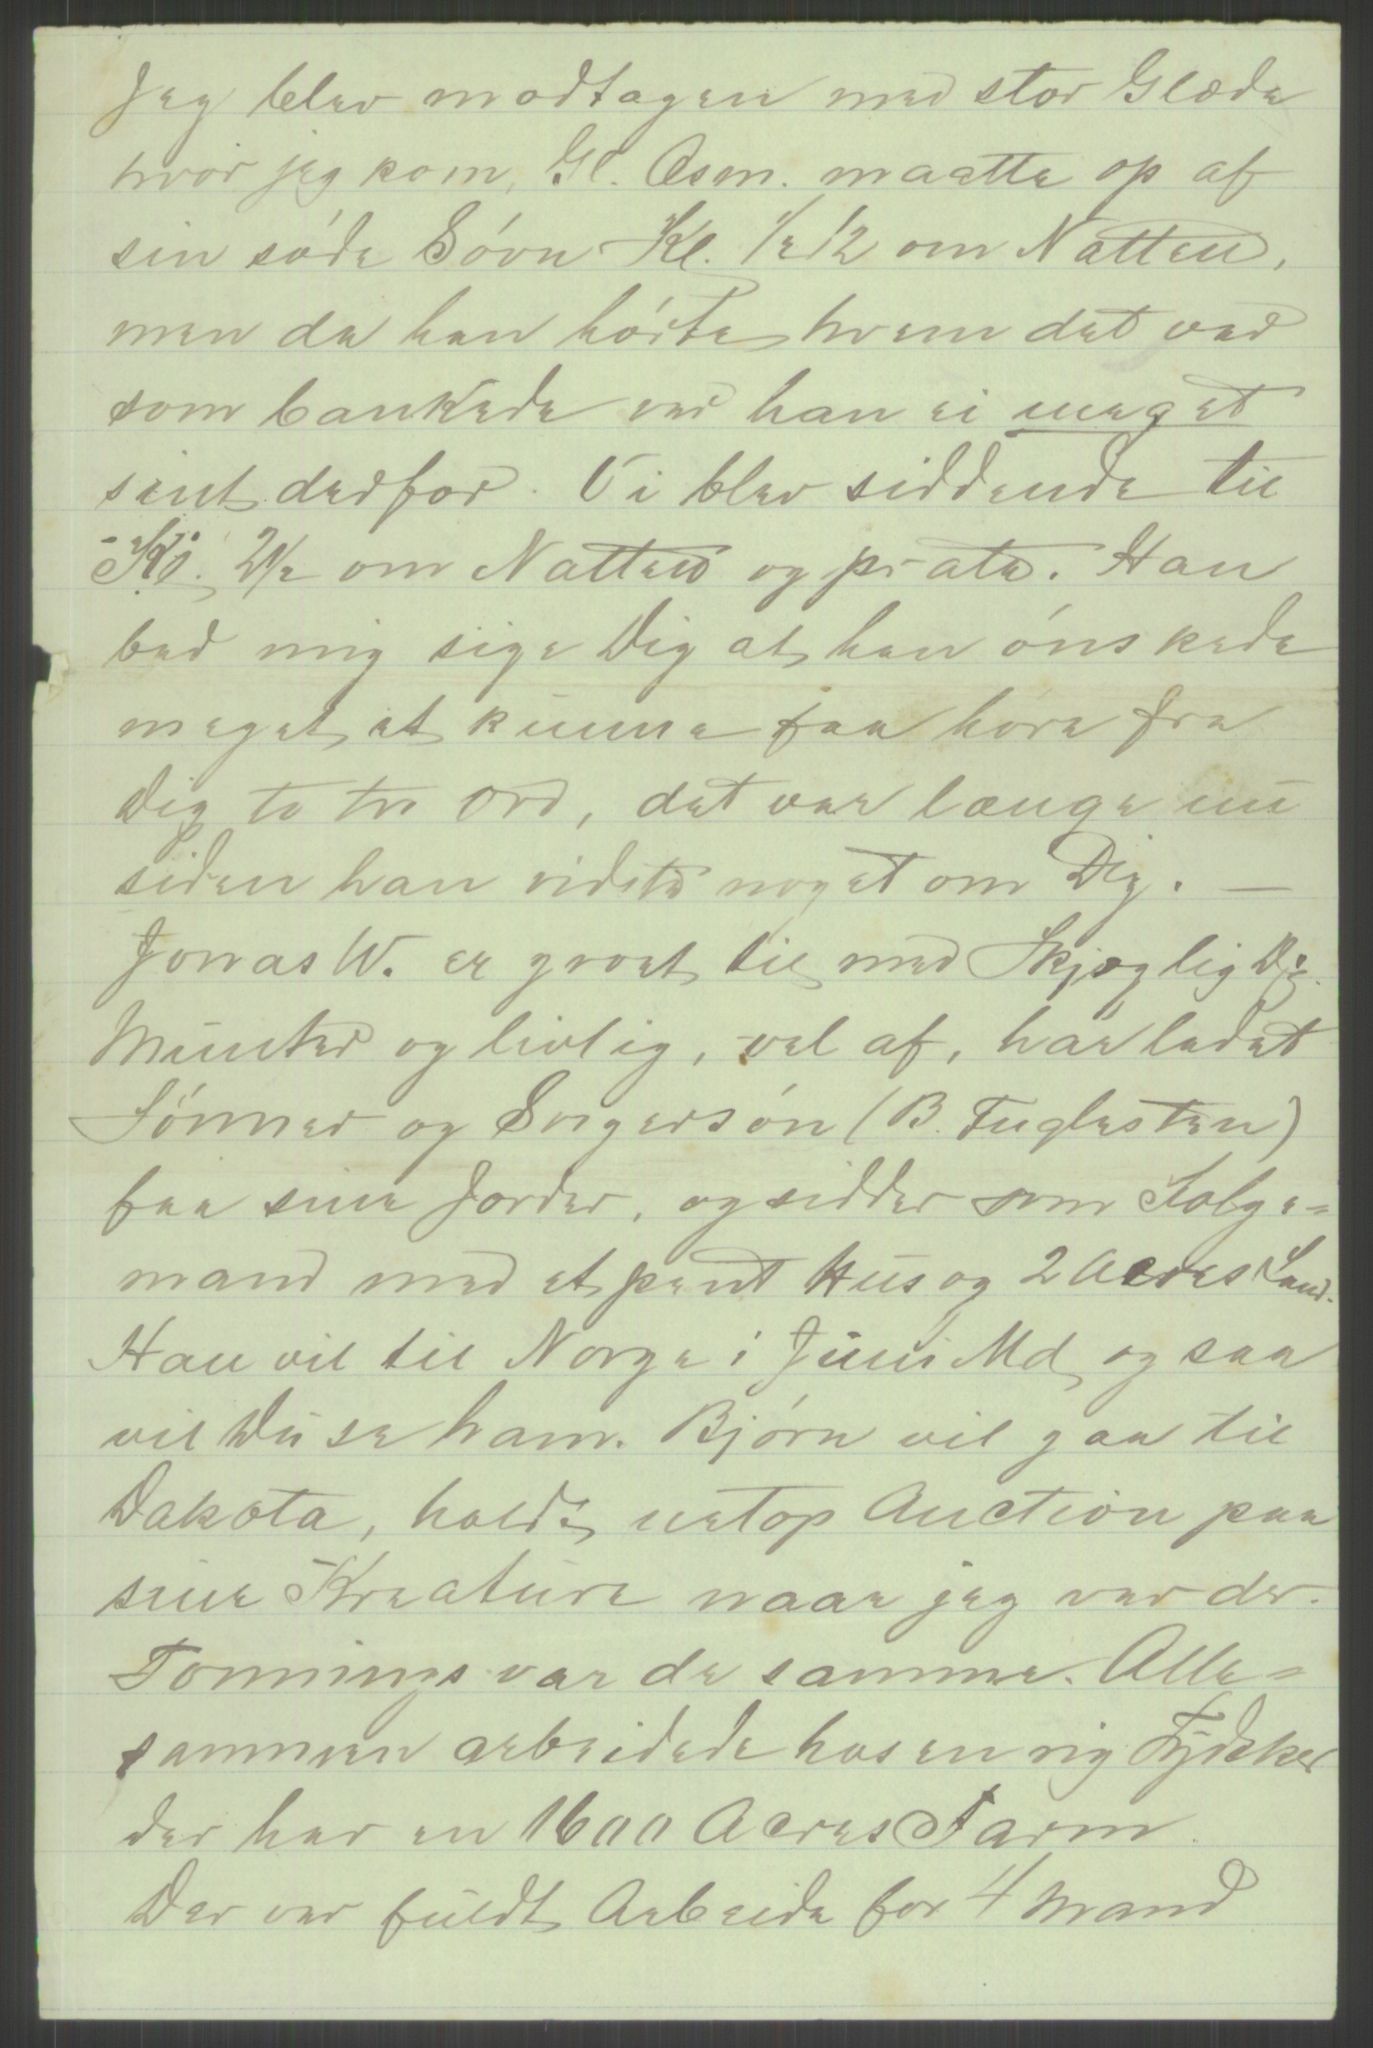 Jeg blev modtagen med stor Glæde
hvor jeg kom, Gl. Osm. maatte op af
sin søde Søvn Kl. 1/2 12 om Natten,
men da han hørte hvem det var
som bankede var han ei meget
sint derfor. Vi blev siddende til
Kl. 2 1/2 om Natten og prate. Han
bad mig sige Dig at han ønskede
meget at kunne faa høre fra
Dig to tre Ord, det var længe nu
siden han vidste noget om Dig. —
Jonas W. er groet til med Skjæg lig Dig.
Munter og livlig, vel af, har ladet
Sønner og Svigersøn (B. Fuglesten)
faa sine Jorder, og sidder som Folge=
mand med et pent Hus og 2 Acres Land.
Han vil til Norge i Juni Md og saa
vil Du se ham. Bjørn vil gaa til
Dakota, holdt netop Auction paa
sine Kreature naar jeg var der.
Tonnings var de samme. Alle=
sammen arbeidede hos en rig Tydsker
der har en 1600 Acres Farm.
Der var fuldt Arbeide for 4 Mand